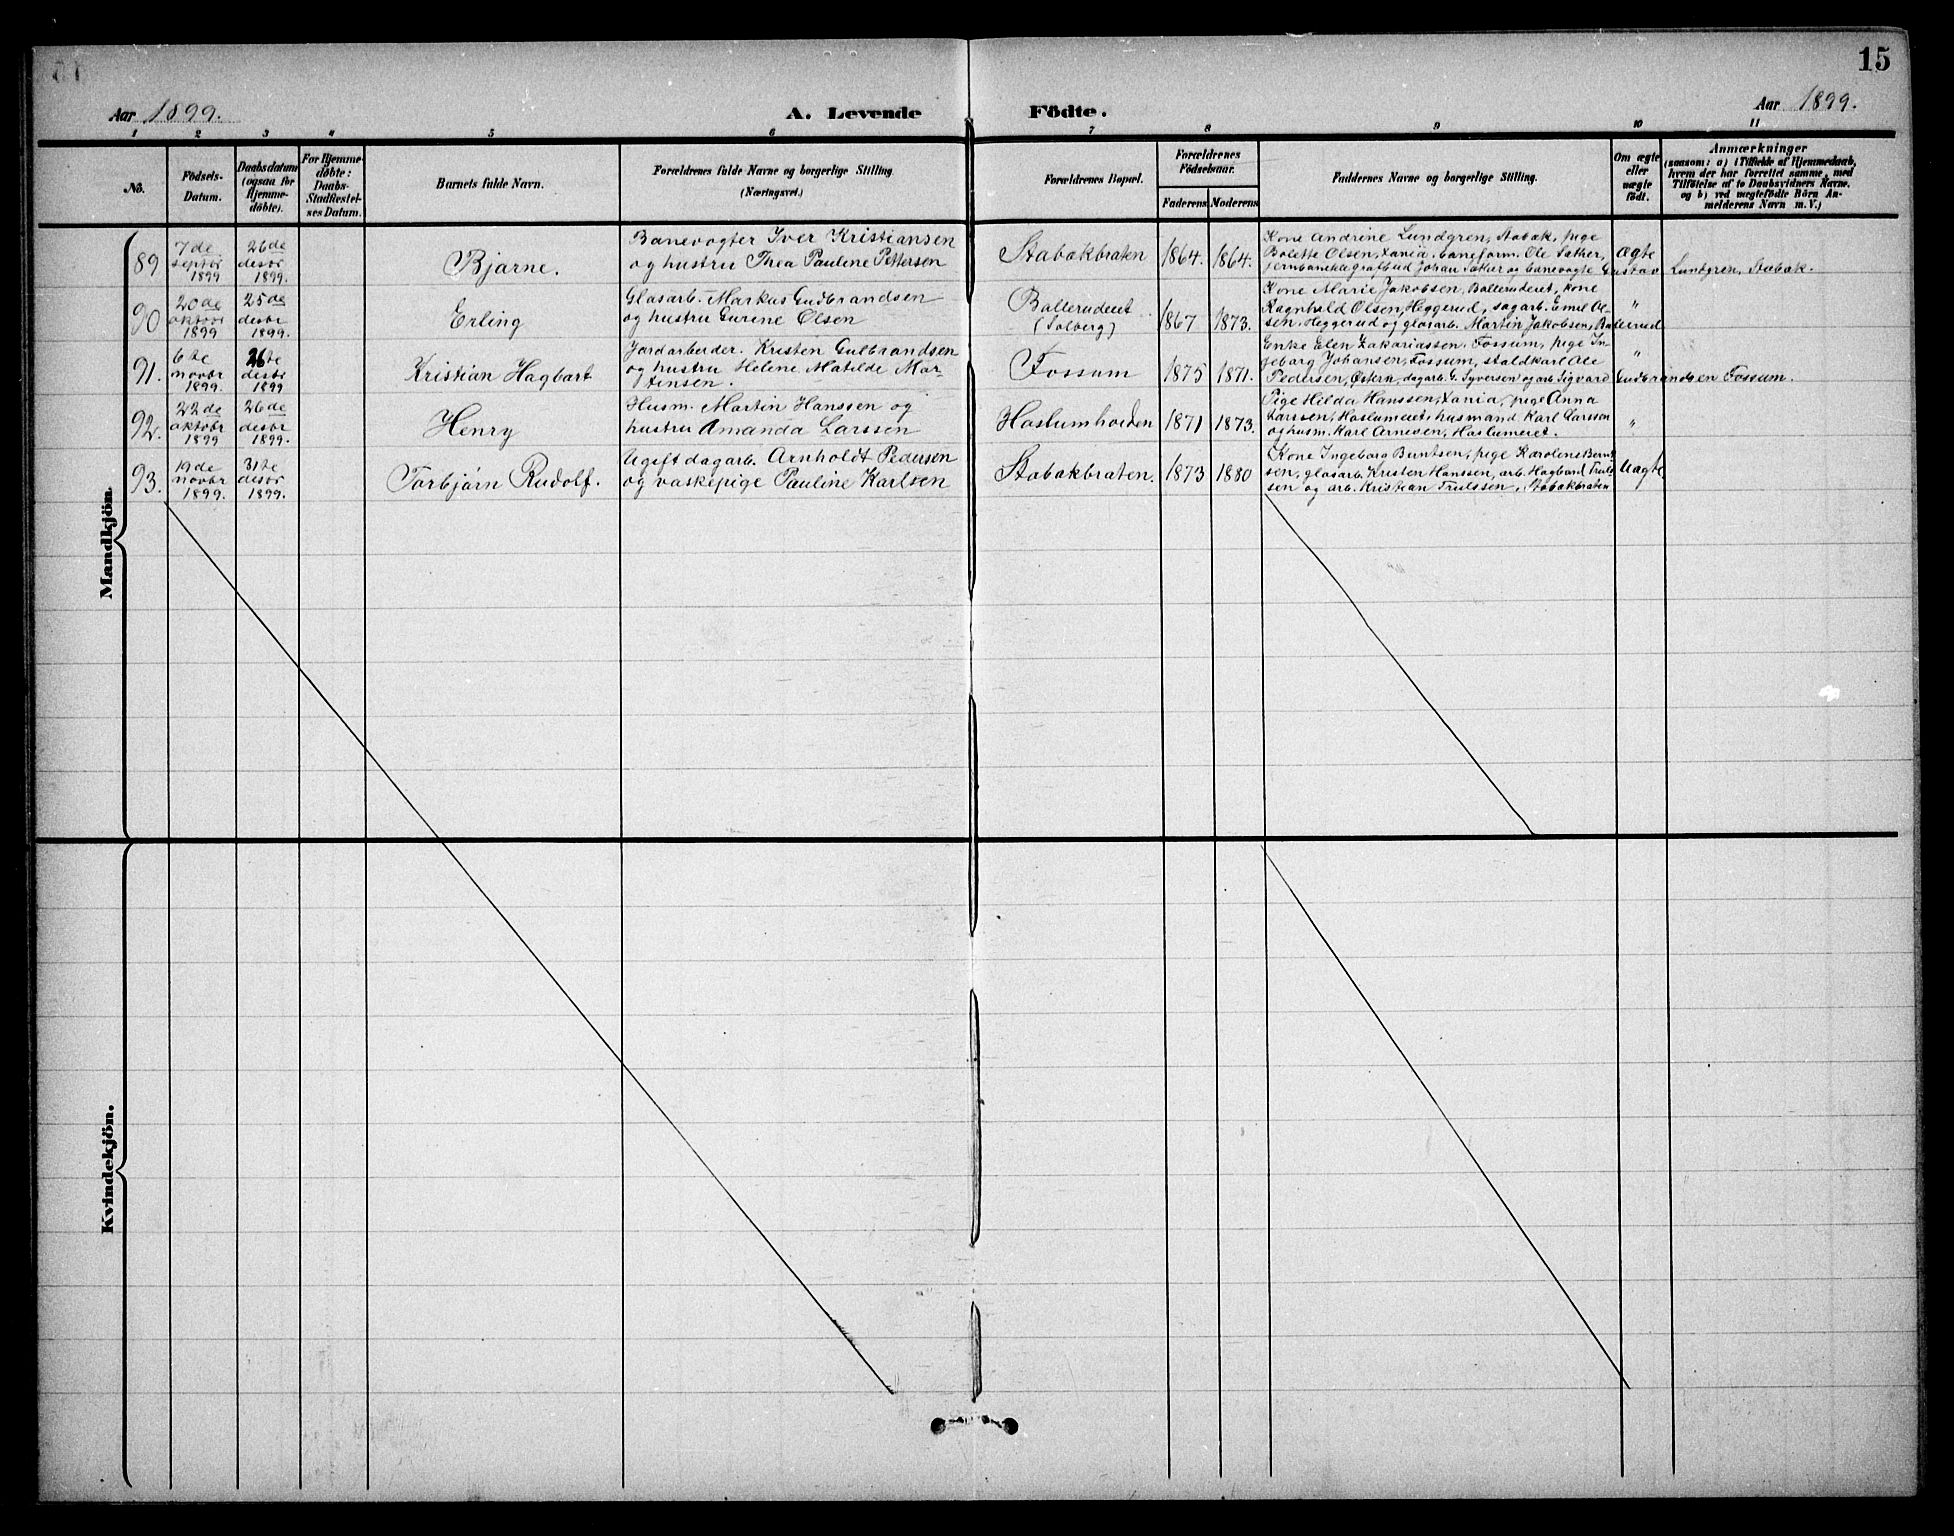 15
Aar 1899.
A. Levende Födte.
Aar 1899.
1 2 3 4 5 6 7 8 9 10 11
No.
Födsels-
Datum.
Daabsdatum
(ogsaa for
Hjemme-
döbte).
For Hjemme-
döbte:
Daabs-
Stadfæstel-
ses Datum.
Barnets fulde Navn.
Forældrenes fulde Navne og borgerlige Stilling
(Næringsvei.)
Forældrenes Bopæl.
Forældrenes
Födselsaar.
Faderens
Moderens
Faddernes Navne og borgerlige Stilling.
Om ægte
eller
uægte
født.
Anmærkninger
(saasom: a) i Tilfælde af Hjemmedaab,
hvem der har forrettet samme, med
Tilföielse af to Daabsvidners Navne,
og b) ved uægtefödte Börn An-
melderens Navn m. V.)
Mandkjön.
89
7de
septbr
1899
26de
desbr
1899.
Bjarne.
Banevogter Iver Kristiansen
og hustru Thea Pauline Pettersen
Stabækbraten
1864.
1864.
Kone Andrine Lundgren, Stabæk, pige
Bolette Olsen, Xania, baneform. Ole Sæther,
jernbanetelegrafbud Johan Sæther og banevogte Gustav Lundgren, Stabæk.
Ægte
90
20de
oktobr
1899
25de
desbr
1899.
Erling
Glasarb. Markus Gudbrandsen
og hustru Gurine Olsen
Ballerudeiet
(Solberg)
1867
1873.
Kone Marie Jakobsen, Ballerudeiet, kone
Ragnhild Olsen, Heggerud, sagarb. Emil Ol-
sen, Heggerud og glasarb. Martin Jakobsen, Ballerud
"
91.
6te
novbr
1899.
26te
desbr
1899
Kristian Hagbart
Jordarbeider. Kristen Gulbrandsen
og hustru Helene Matilde Mar-
tinsen.
Fossum
1875
1871.
Enke Elen Zakariassen, Fossum, pige In-
geborg Johansen, Fossum, staldkarl Ole
Pedersen, Østern, dagarb. G. Syversen og arb. Sigvard Gudbrandsen Fossum.
"
92.
22de
oktobr
1899
26de
desbr
1899.
Henry
Husm. Martin Hanssen og
hustru Amanda Larssen
Haslumholden
1871
1873.
Pige Hilda Hanssen, Xania, pige Anna
Larssen, Haslumeiet, husmand Karl Larssen
og husm. Karl Arnesen, Haslumeiet.
"
93.
19de
novbr
1899.
31te
desbr
1899.
Torbjørn Rudolf.
Ugift dagarb. Arnholdt Pedersen
og vaskepige Pauline Karlsen
Stabækbraten.
1873
1880
Kone Ingeborg Berntsen, pige Karoline Bernt-
sen, glasarb. Kristen Hanssen, arb. Hagbard Truls-
sen og arb. Kristian Trulssen, Stabækbraten
Uægte
Kvindekjön.